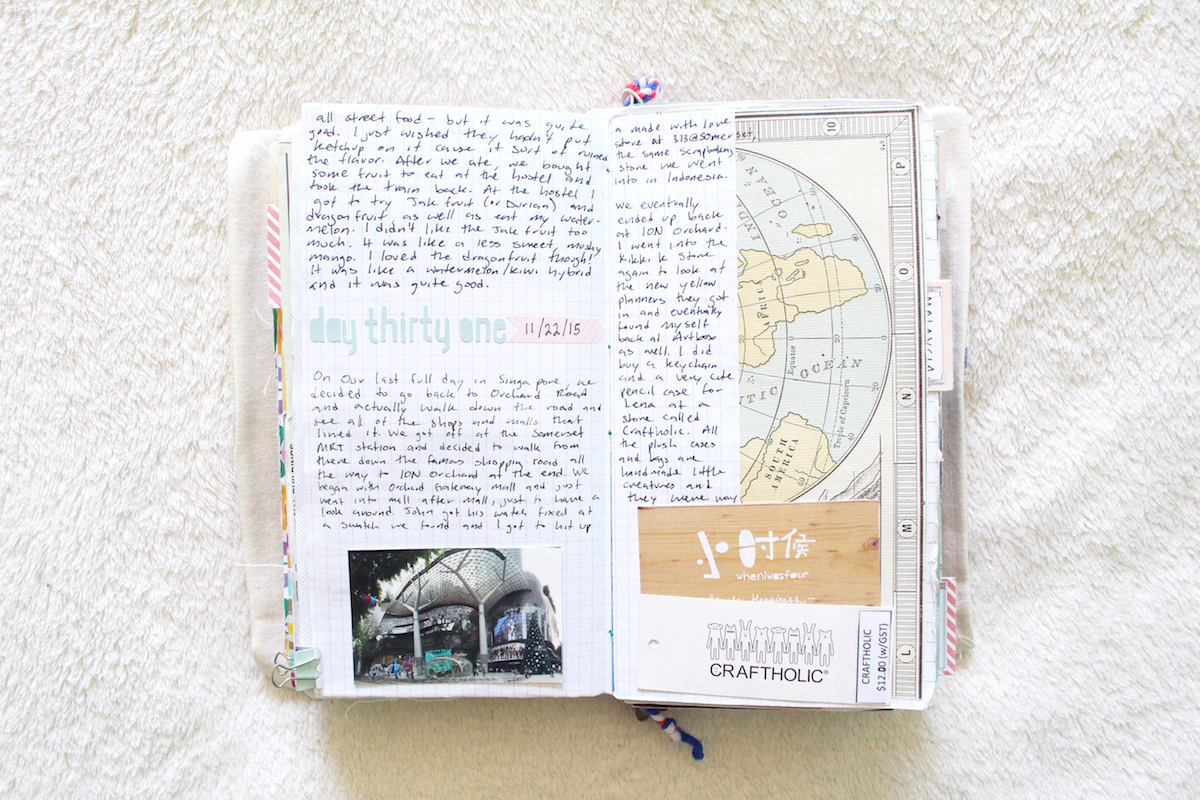 all street food - but it was quite
good. I just wished they hadn't put
ketchup on it cause it sort of ruined
the flavor. After we ate, we bought
some fruit to eat at the hostel and
took the train back. At the hostel I
got to try Jakfruit (or Durian) and
dragonfruit, as well as eat my water-
melon. I didn't like the Jakfruit too
much. It was like a less sweet, mushy
mango. I loved the dragonfruit though!
It was like a watermelon/kiwi hybrid
and it was quite good.
day thirty one 11/22/15
On our last full day in Singapore, we
decided to go back to Orchard Road
and actually walk down the road and
see all of the shops and malls that
lined it. We got off at the Somerset
MRT station and decided to walk from
there down the famous shopping road all
the way to ION Orchard at the end. We
began with Orchard Gateway mall and just
went into mall after mall, just to have a
look around. John got his watch fixed at
a Swatch we found and I got to hit up
a made with love
store at 313@Somerset,
the same scrapbooking
store we went
into in Indonesia.
we eventually
ended up back
at ION Orchard.
I went into the
Kikki K Store
again to look at
the new yellow
planners they got
in and eventually
found myself
back at Artbox
as well. I did
buy a keychain
and a very cute
pencil case for
Lena at a
store called
Craftholic. All
the plush cases
and bags are
handmade little
creatures and
they were way
10
P
O
N
M
L
INDIAN
OCEAN
AFRICA
Equator
OCEAN
Tropic of Capricorn
SOUTH
AMERICA
小时候
wheniwasfour
CRAFTHOLIC®
CRAFTHOLIC
$12.00 (w/GST)